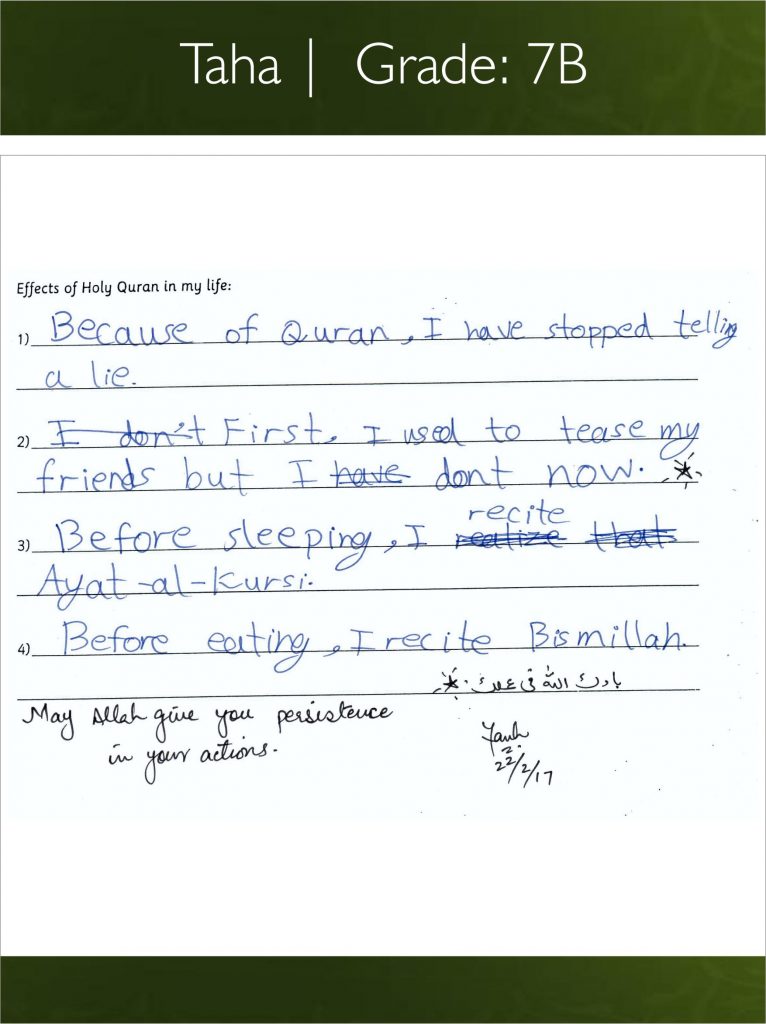 Taha | Grade: 7B
Effects of Holy Quran in my life:
1) Because of Quran, I have stopped telling
a lie.
2) I don't First, I used to tease my
friends but I have dont now.
recite
3) Before sleeping, I realize that
Ayat-al-Kursi.
4) Before eating, I recite Bismillah.
بارك الله فى عملك
May Allah give you persistence
in your actions.
22/2/17